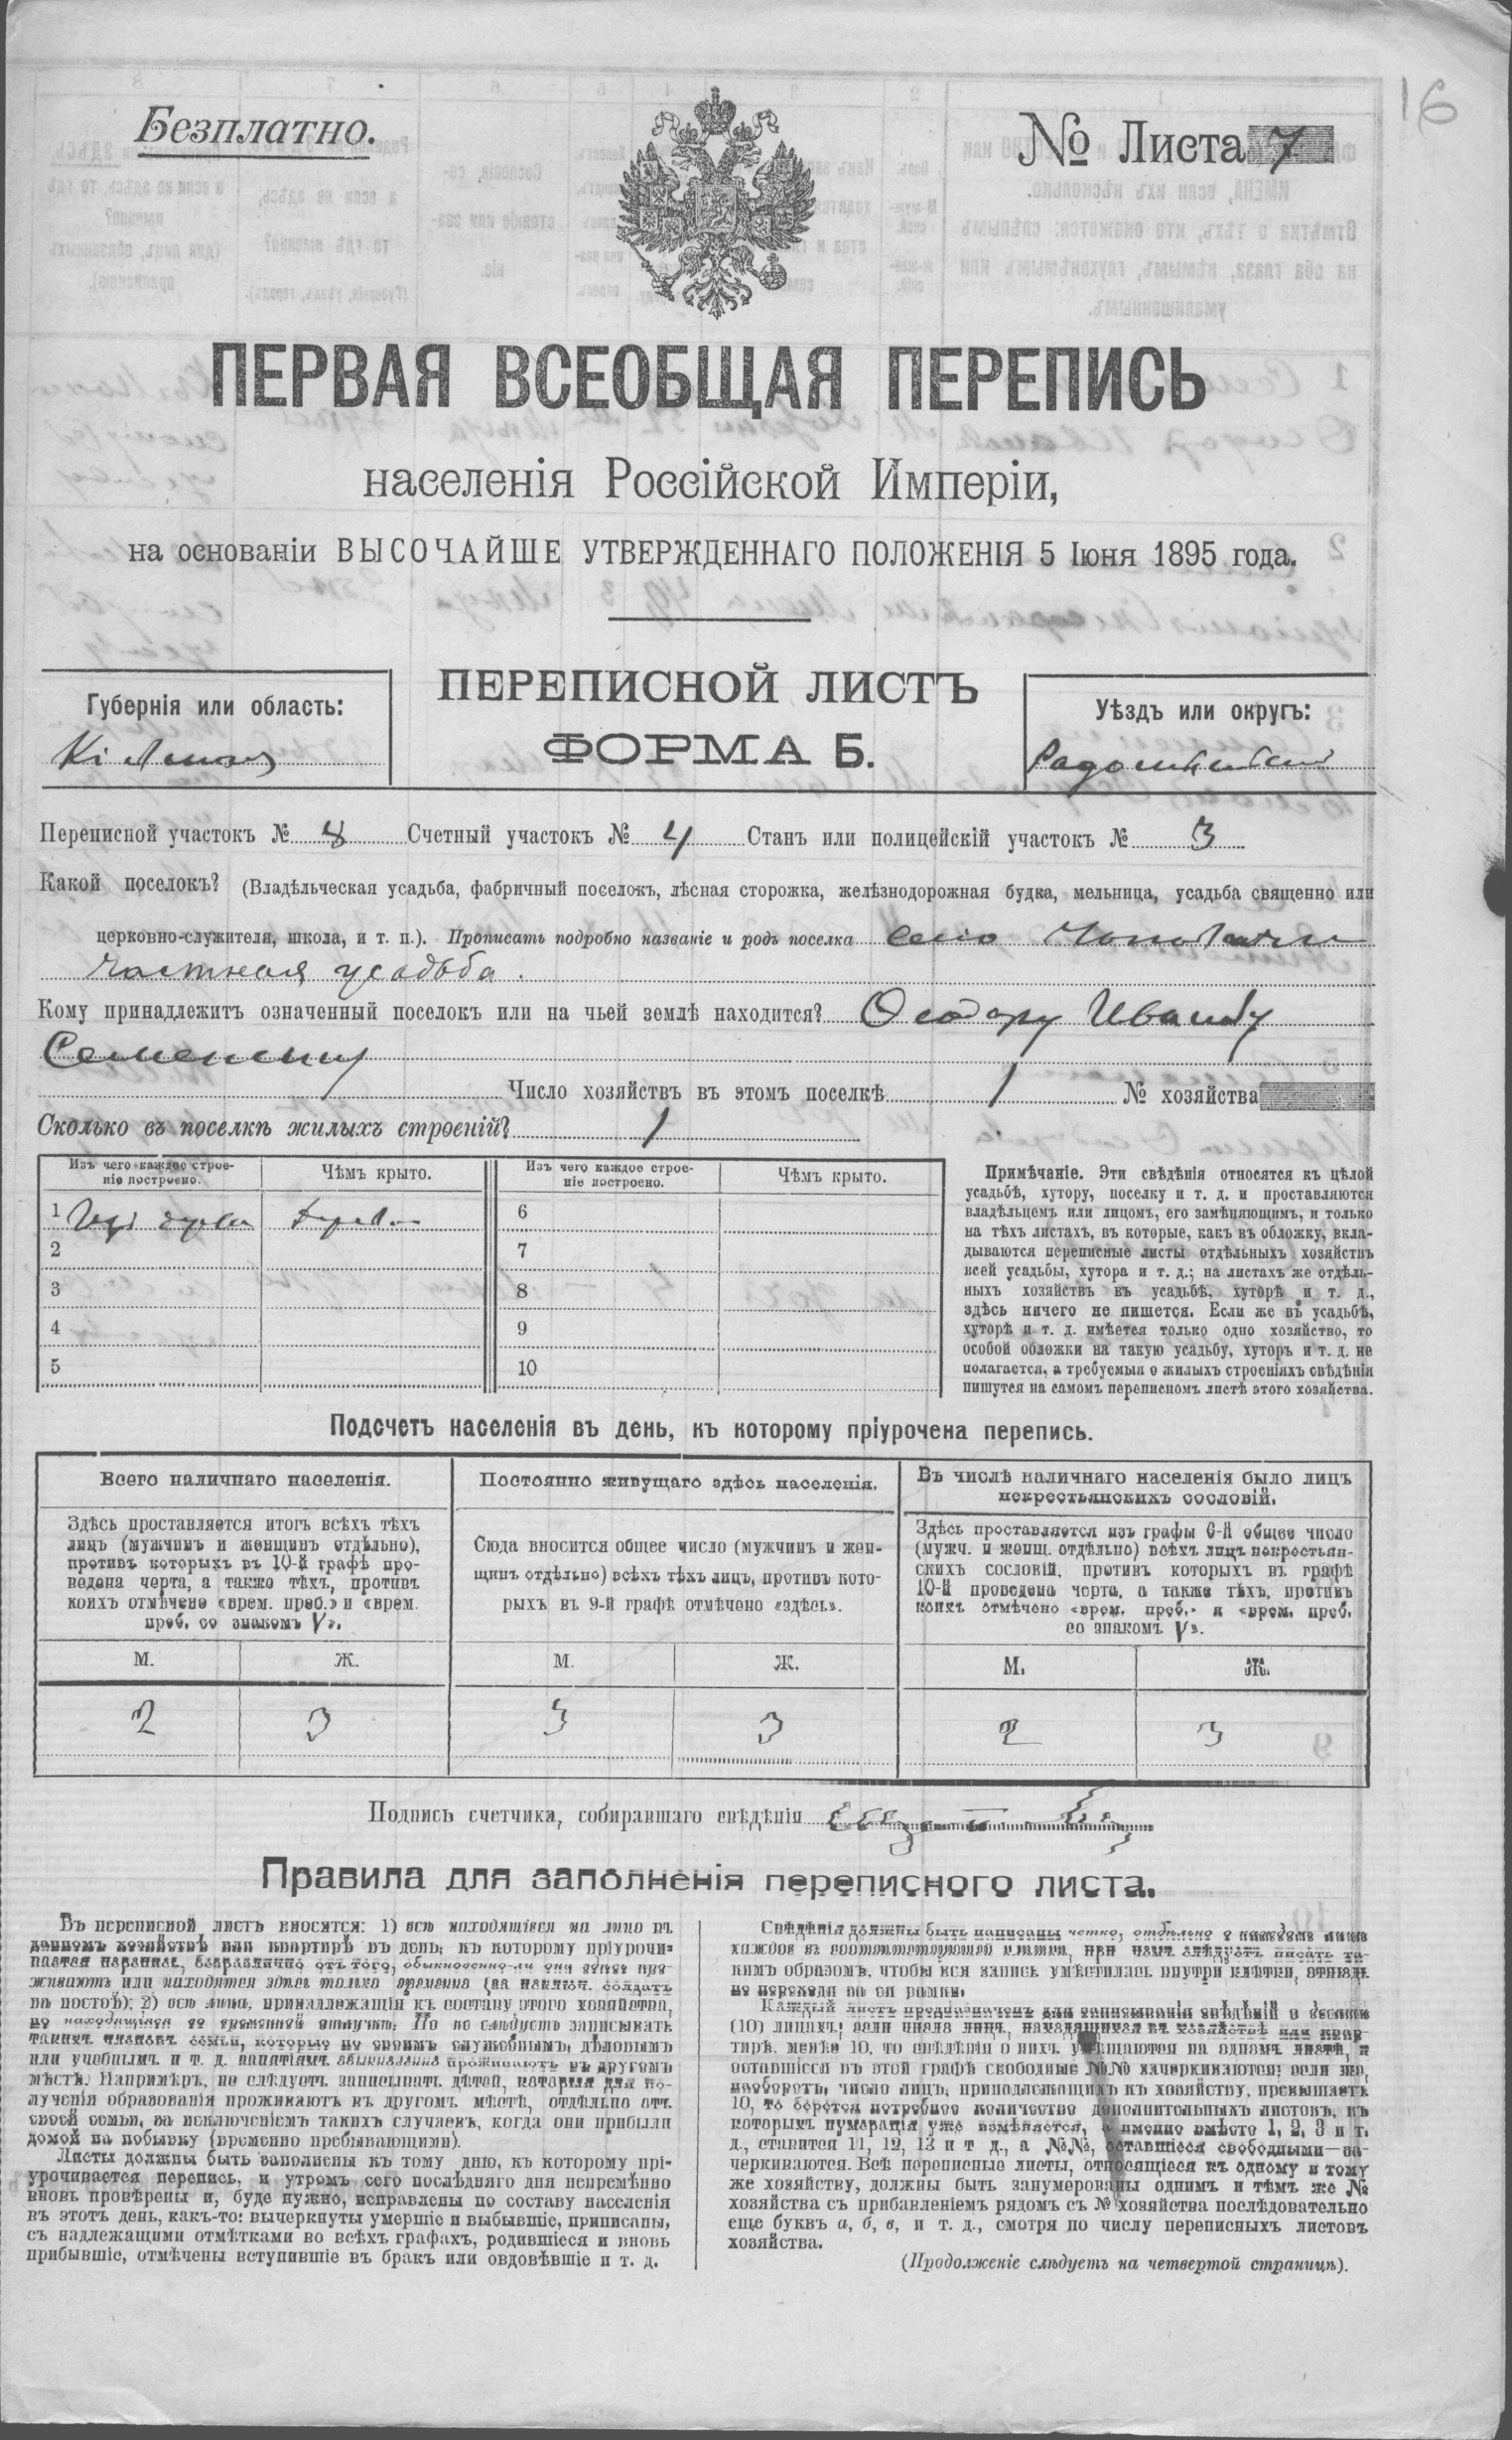 16
Безплатно.
№ Листа 7
ПЕРВАЯ ВСЕОБЩАЯ ПЕРЕПИСЬ
населенія Россійской Имперіи,
на основаніи ВЫСОЧАЙШЕ УТВЕРЖДЕННАГО ПОЛОЖЕНІЯ 5 Іюня 1895 года.
ПЕРЕПИСНОЙ ЛИСТЪ
ФОРМА Б.
Губернія или область:
Уѣздъ или округъ:
Переписной участокъ № 8 Счетный участокъ № 4 Станъ или полицейскій участокъ № 3
Какой поселокъ? (Владѣльческая усадьба, фабричный поселокъ, лѣсная сторожка, желѣзнодорожная будка, мельница, усадьба священно или
церковно-служителя, школа, и т. п.). Прописать подробно названіе и родъ поселка село
частная усадьба.
Кому принадлежитъ означенный поселокъ или на чьей землѣ находится? Ѳеодору Иванову
Число хозяйствъ въ этомъ поселкѣ 1 № хозяйства
Сколько въ поселкѣ жилыхъ строеній? 1
Изъ чего каждое строеніе построено. Чѣмъ крыто. Изъ чего каждое строеніе построено. Чѣмъ крыто.
1 6
2 7
3 8
4 9
5 10
Примѣчаніе. Эти свѣдѣнія относятся къ цѣлой
усадьбѣ, хутору, поселку и т. д. и проставляются
владѣльцемъ или лицомъ, его замѣняющимъ, и только
на тѣхъ листахъ, въ которые, какъ въ обложку, вкла-
дываются переписные листы отдѣльныхъ хозяйствъ
всей усадьбы, хутора и т. д.; на листахъ же отдѣль-
ныхъ хозяйствъ въ усадьбѣ, хуторѣ и т. д.,
здѣсь ничего не пишется. Если же въ усадьбѣ,
хуторѣ и т. д. имѣется только одно хозяйство, то
особой обложки на такую усадьбу, хуторъ и т. д. не
полагается, а требуемыя о жилыхъ строеніяхъ свѣдѣнія
пишутся на самомъ переписномъ листѣ этого хозяйства.
Подсчетъ населенія въ день, къ которому пріурочена перепись.
Всего наличнаго населенія.
Здѣсь проставляется итогъ всѣхъ тѣхъ
лицъ (мужчинъ и женщинъ отдѣльно),
противъ которыхъ въ 10-й графѣ про-
ведена черта, а также тѣхъ, противъ
коихъ отмѣчено «врем. преб.» и «врем.
преб. со знакомъ V».
М. Ж.
2 3
Постоянно живущаго здѣсь населенія.
Сюда вносится общее число (мужчинъ и жен-
щинъ отдѣльно) всѣхъ тѣхъ лицъ, противъ кото-
рыхъ въ 9-й графѣ отмѣчено «здѣсь».
М. Ж.
3 3
Въ числѣ наличнаго населенія было лицъ
некрестьянскихъ сословій.
Здѣсь проставляется изъ графы 6-й общее число
(мужч. и женщ. отдѣльно) всѣхъ лицъ некрестьян-
скихъ сословій, противъ которыхъ въ графѣ
10-й проведена черта, а также тѣхъ, противъ
коихъ отмѣчено «врем. преб.» и «врем. преб.
со знакомъ V».
М. Ж.
2 3
Подпись счетчика, собиравшаго свѣдѣнія
Правила для заполненія переписного листа.
Въ переписной листъ вносятся: 1) всѣ находящіеся на лицо въ
данномъ хозяйствѣ или квартирѣ въ день, къ которому пріурочи-
вается перепись, безразлично отъ того, обыкновенно-ли они здѣсь про-
живаютъ или находятся здѣсь только временно (за исключ. солдатъ
на постоѣ); 2) всѣ лица, принадлежащія къ составу этого хозяйства,
но находящіяся во временной отлучкѣ. Но не слѣдуетъ записывать
такихъ членовъ семьи, которые по своимъ служебнымъ, дѣловымъ
или учебнымъ и т. д. занятіямъ обыкновенно проживаютъ въ другомъ
мѣстѣ. Напримѣръ, не слѣдуетъ записывать дѣтей, которыя для по-
лученія образованія проживаютъ въ другомъ мѣстѣ, отдѣльно отъ
своей семьи, за исключеніемъ такихъ случаевъ, когда они прибыли
домой на побывку (временно пребывающими).
Листы должны быть заполнены къ тому дню, къ которому прі-
урочивается перепись, и утромъ сего послѣдняго дня непремѣнно
вновь провѣрены и, буде нужно, исправлены по составу населенія
въ этотъ день, какъ-то: вычеркнуты умершіе и выбывшіе, приписаны,
съ надлежащими отмѣтками во всѣхъ графахъ, родившіеся и вновь
прибывшіе, отмѣчены вступившіе въ бракъ или овдовѣвшіе и т. д.
Свѣдѣнія должны быть написаны четко, отдѣльно о каждомъ лицѣ
каждое въ соотвѣтствующей клѣткѣ, при чемъ слѣдуетъ писать та-
кимъ образомъ, чтобы вся запись умѣстилась внутри клѣтки, отнюдь
не переходя за ея рамки.
Каждый листъ предназначенъ для записыванія свѣдѣній о десяти
(10) лицахъ; если число лицъ, находящихся въ хозяйствѣ или квар-
тирѣ, менѣе 10, то свѣдѣнія о нихъ умѣщаются на одномъ листѣ, и
оставшіеся въ этой графѣ свободные №№ зачеркиваются; если же,
наоборотъ, число лицъ, принадлежащихъ къ хозяйству, превышаетъ
10, то берется потребное количество дополнительныхъ листовъ, въ
которыхъ нумерація уже измѣняется, а именно вмѣсто 1, 2, 3 и т.
д., ставится 11, 12, 13 и т д., а №№, оставшіеся свободными—за-
черкиваются. Всѣ переписные листы, относящіеся къ одному и тому
же хозяйству, должны быть занумерованы однимъ и тѣмъ же №
хозяйства съ прибавленіемъ рядомъ съ № хозяйства послѣдовательно
еще буквъ а, б, в, и т. д., смотря по числу переписныхъ листовъ
хозяйства.
(Продолженіе слѣдуетъ на четвертой страницѣ).